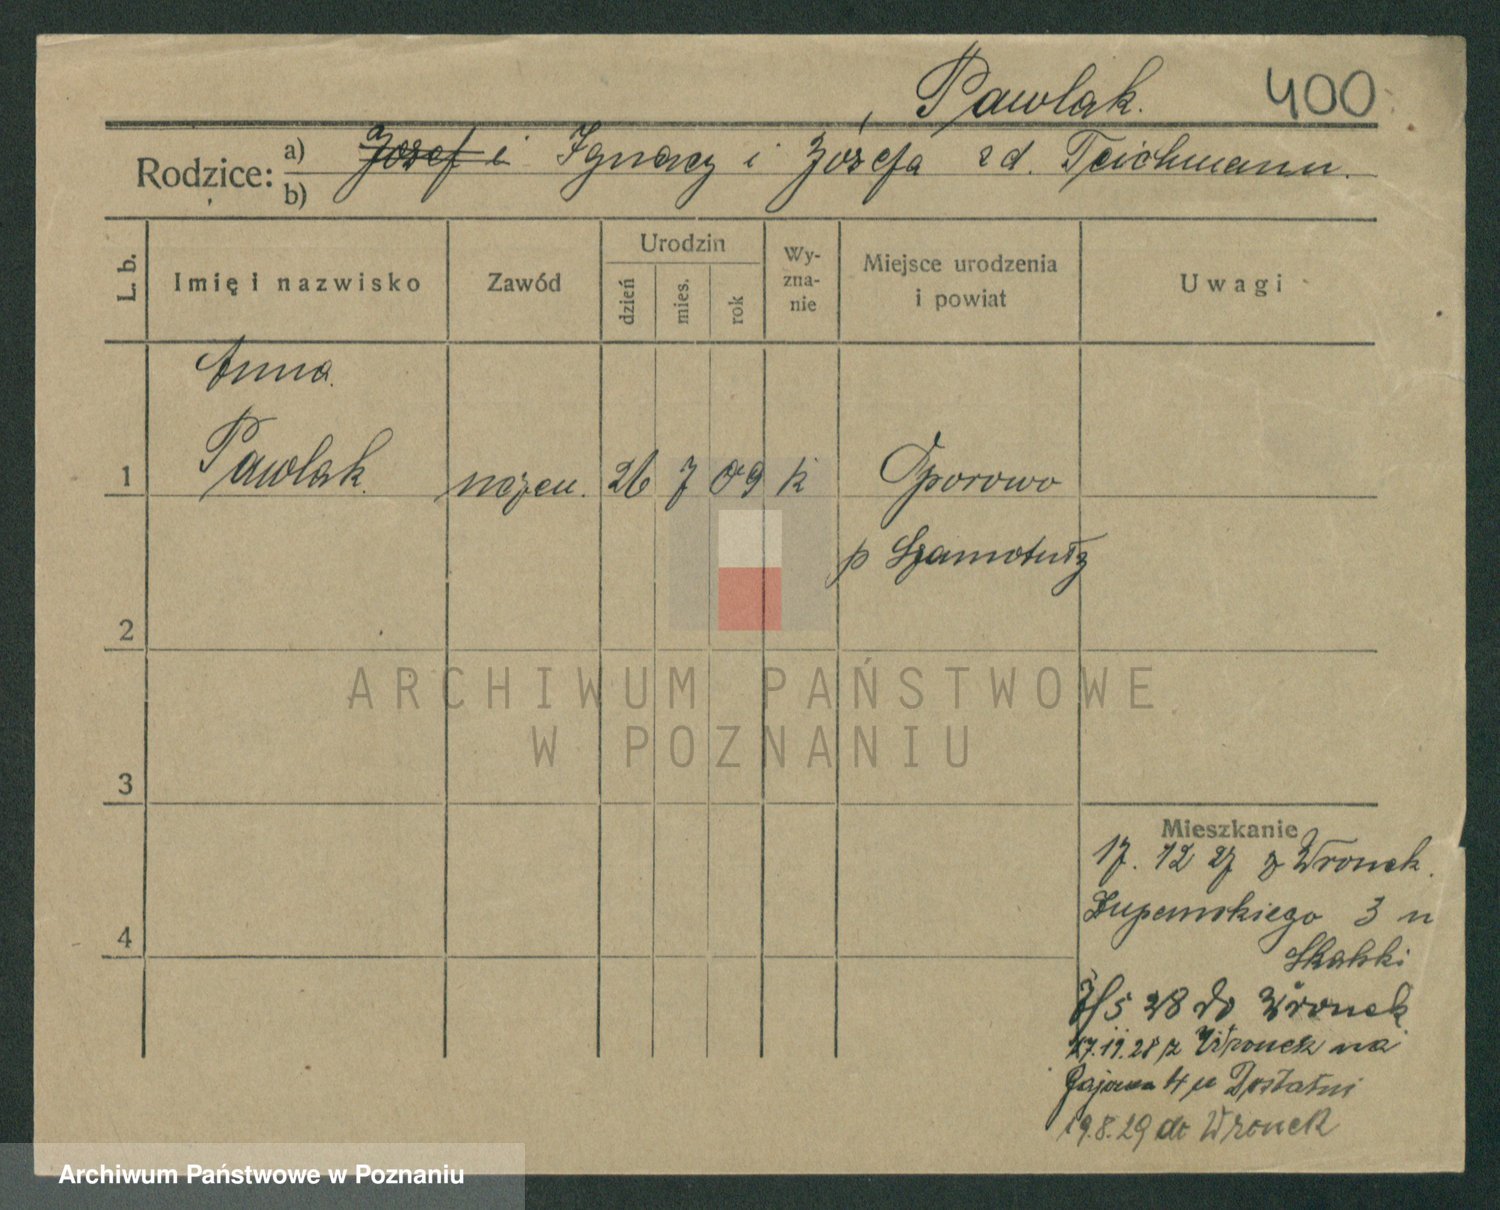 Pawlak. 400
Rodzice: a) Józef i Ignacy i Józefa zd. Teichmann.
b)
L. b. Imię i nazwisko Zawód Urodzin dzień mies. rok Wy-zna-nie Miejsce urodzenia i powiat Uwagi
Anna
1 Pawlak. uczen. 26 7 09 k Oporowo
p Szamotuły
2
ARCHIWUM PAŃSTWOWE
W POZNANIU
3
Mieszkanie
17. 12 27 z Wronek.
Żupańskiego 3 u
4
7/5 28 do Wronek
17.11.28 z Wronek na
Gajowa 4 u Dostatni
19.8.29 do Wronek
Archiwum Państwowe w Poznaniu